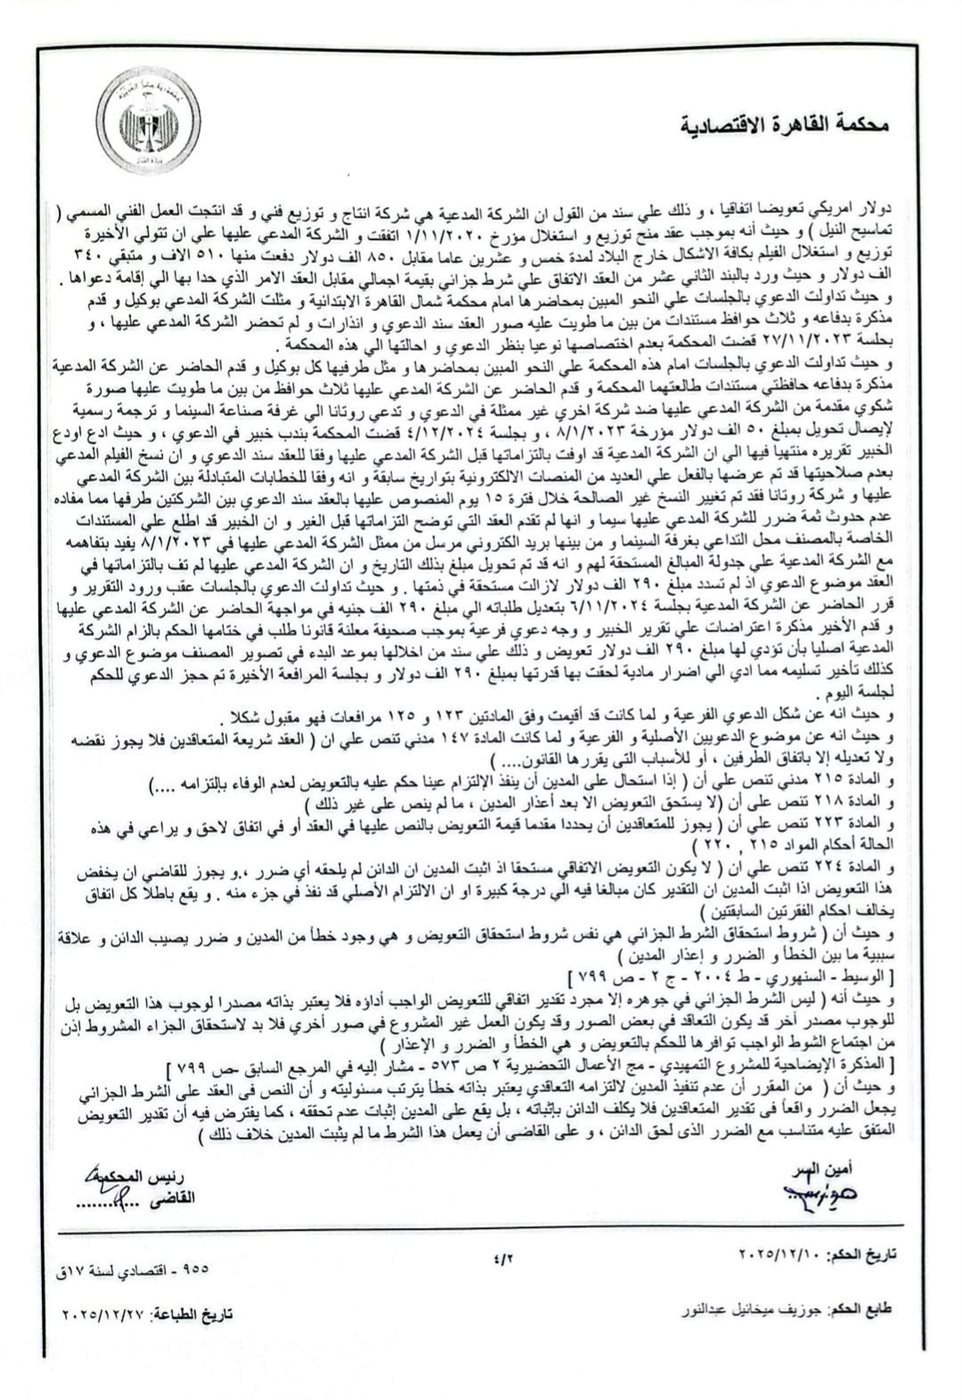 محكمة القاهرة الاقتصادية
دولار امريكي تعويضا اتفاقيا ، و ذلك علي سند من القول ان الشركة المدعية هي شركة انتاج و توزيع فني و قد انتجت العمل الفني المسمي (
تماسيح النيل ) و حيث أنه بموجب عقد منح توزيع و استغلال مؤرخ ١/١١/٢٠٢٠ اتفقت و الشركة المدعي عليها علي ان تتولي الأخيرة
توزيع و استغلال الفيلم بكافة الاشكال خارج البلاد لمدة خمس و عشرين عاما مقابل ٨٥٠ الف دولار دفعت منها ٥١٠ الاف و متبقي ٣٤٠
الف دولار و حيث ورد بالبند الثاني عشر من العقد الاتفاق علي شرط جزائي بقيمة اجمالي مقابل العقد الامر الذي حدا بها الي إقامة دعواها .
و حيث تداولت الدعوي بالجلسات علي النحو المبين بمحاضرها امام محكمة شمال القاهرة الابتدائية و مثلت الشركة المدعي بوكيل و قدم
مذكرة بدفاعه و ثلاث حوافظ مستندات من بين ما طويت عليه صور العقد سند الدعوي و انذارات و لم تحضر الشركة المدعي عليها ، و
بحلسة ٢٧/١١/٢٠٢٣ قضت المحكمة بعدم اختصاصها نوعيا بنظر الدعوي و احالتها الي هذه المحكمة .
و حيث تداولت الدعوي بالجلسات امام هذه المحكمة علي النحو المبين بمحاضرها و مثل طرفيها كل بوكيل و قدم الحاضر عن الشركة المدعية
مذكرة بدفاعه حافظتي مستندات طالعتهما المحكمة و قدم الحاضر عن الشركة المدعي عليها ثلاث حوافظ من بين ما طويت عليها صورة
شكوي مقدمة من الشركة المدعي عليها ضد شركة اخري غير ممثلة في الدعوي و تدعي روتانا الي غرفة صناعة السينما و ترجمة رسمية
لإيصال تحويل بمبلغ ٥٠ الف دولار مؤرخة ٨/١/٢٠٢٣ ، و بجلسة ٤/١٢/٢٠٢٤ قضت المحكمة بندب خبير في الدعوي ، و حيث ادع اودع
الخبير تقريره منتهيا فيها الي ان الشركة المدعية قد اوفت بالتزاماتها قبل الشركة المدعي عليها وفقا للعقد سند الدعوي و ان نسخ الفيلم المدعي
بعدم صلاحيتها قد تم عرضها بالفعل علي العديد من المنصات الالكترونية بتواريخ سابقة و انه وفقا للخطابات المتبادلة بين الشركة المدعي
عليها و شركة روتانا فقد تم تغيير النسخ غير الصالحة خلال فترة ١٥ يوم المنصوص عليها بالعقد سند الدعوي بين الشركتين طرفها مما مفاده
عدم حدوث ثمة ضرر للشركة المدعي عليها سيما و انها لم تقدم العقد التي توضح التزاماتها قبل الغير و ان الخبير قد اطلع علي المستندات
الخاصة بالمصنف محل التداعي بغرفة السينما و من بينها بريد الكتروني مرسل من ممثل الشركة المدعي عليها في ٨/١/٢٠٢٣ يفيد بتفاهمه
مع الشركة المدعية علي جدولة المبالغ المستحقة لهم و انه قد تم تحويل مبلغ بذلك التاريخ و ان الشركة المدعي عليها لم تف بالتزاماتها في
العقد موضوع الدعوي اذ لم تسدد مبلغ ٢٩٠ الف دولار لازالت مستحقة في ذمتها . و حيث تداولت الدعوي بالجلسات عقب ورود التقرير و
قرر الحاضر عن الشركة المدعية بجلسة ٦/١١/٢٠٢٤ بتعديل طلباته الي مبلغ ٢٩٠ الف جنيه في مواجهة الحاضر عن الشركة المدعي عليها
و قدم الأخير مذكرة اعتراضات علي تقرير الخبير و وجه دعوي فرعية بموجب صحيفة معلنة قانونا طلب في ختامها الحكم بالزام الشركة
المدعية اصليا بأن تؤدي لها مبلغ ٢٩٠ الف دولار تعويض و ذلك علي سند من اخلالها بموعد البدء في تصوير المصنف موضوع الدعوي و
كذلك تأخير تسليمه مما ادي الي اضرار مادية لحقت بها قدرتها بمبلغ ٢٩٠ الف دولار و بجلسة المرافعة الأخيرة تم حجز الدعوي للحكم
لجلسة اليوم .
و حيث انه عن شكل الدعوي الفرعية و لما كانت قد أقيمت وفق المادتين ١٢٣ و ١٢٥ مرافعات فهو مقبول شكلا .
و حيث انه عن موضوع الدعويين الأصلية و الفرعية و لما كانت المادة ١٤٧ مدني تنص علي ان ( العقد شريعة المتعاقدين فلا يجوز نقضه
ولا تعديله إلا باتفاق الطرفين ، أو للأسباب التى يقررها القانون.... )
و المادة ٢١٥ مدني تنص علي أن ( إذا استحال على المدين أن ينفذ الإلتزام عينا حكم عليه بالتعويض لعدم الوفاء بإلتزامه ....)
و المادة ٢١٨ تنص على أن (لا يستحق التعويض الا بعد أعذار المدين ، ما لم ينص على غير ذلك )
و المادة ٢٢٣ تنص علي أن ( يجوز للمتعاقدين أن يحددا مقدما قيمة التعويض بالنص عليها في العقد أو في اتفاق لاحق و يراعي في هذه
الحالة أحكام المواد ٢١٥ , ٢٢٠ )
و المادة ٢٢٤ تنص علي أن ( لا يكون التعويض الاتفاقي مستحقا اذ اثبت المدين ان الدائن لم يلحقه أي ضرر ،.و يجوز للقاضي ان يخفض
هذا التعويض اذا اثبت المدين ان التقدير كان مبالغا فيه الي درجة كبيرة او ان الالتزام الأصلي قد نفذ في جزء منه . و يقع باطلاً كل اتفاق
يخالف احكام الفقرتين السابقتين )
و حيث أن ( شروط استحقاق الشرط الجزائي هي نفس شروط استحقاق التعويض و هي وجود خطأ من المدين و ضرر يصيب الدائن و علاقة
سببية ما بين الخطأ و الضرر و إعذار المدين )
[ الوسيط - السنهوري - ط ٢٠٠٤ - ج ٢ - ص ٧٩٩ ]
و حيث أنه ( ليس الشرط الجزائي في جوهره إلا مجرد تقدير اتفاقي للتعويض الواجب أداؤه فلا يعتبر بذاته مصدرا لوجوب هذا التعويض بل
للوجوب مصدر آخر قد يكون التعاقد في بعض الصور وقد يكون العمل غير المشروع في صور أخري فلا بد لاستحقاق الجزاء المشروط إذن
من اجتماع الشوط الواجب توافرها للحكم بالتعويض و هي الخطأ و الضرر و الإعذار )
[ المذكرة الإيضاحية للمشروع التمهيدي - مج الأعمال التحضيرية ٢ ص ٥٧٣ - مشار إليه في المرجع السابق -ص ٧٩٩ ]
و حيث أن ( من المقرر أن عدم تنفيذ المدين لالتزامه التعاقدي يعتبر بذاته خطأ يترتب مسئوليته و أن النص فى العقد على الشرط الجزائي
يجعل الضرر واقعاً فى تقدير المتعاقدين فلا يكلف الدائن بإثباته ، بل يقع على المدين إثبات عدم تحققه ، كما يفترض فيه أن تقدير التعويض
المتفق عليه متناسب مع الضرر الذى لحق الدائن ، و على القاضى أن يعمل هذا الشرط ما لم يثبت المدين خلاف ذلك )
أمين السر
رئيس المحكمة
القاضى ..........
تاريخ الحكم: ٢٠٢٥/١٢/١٠
٤/٢
٩٥٥ - اقتصادي لسنة ١٧ق
طابع الحكم: جوزيف ميخائيل عبدالنور
تاريخ الطباعة: ٢٠٢٥/١٢/٢٧